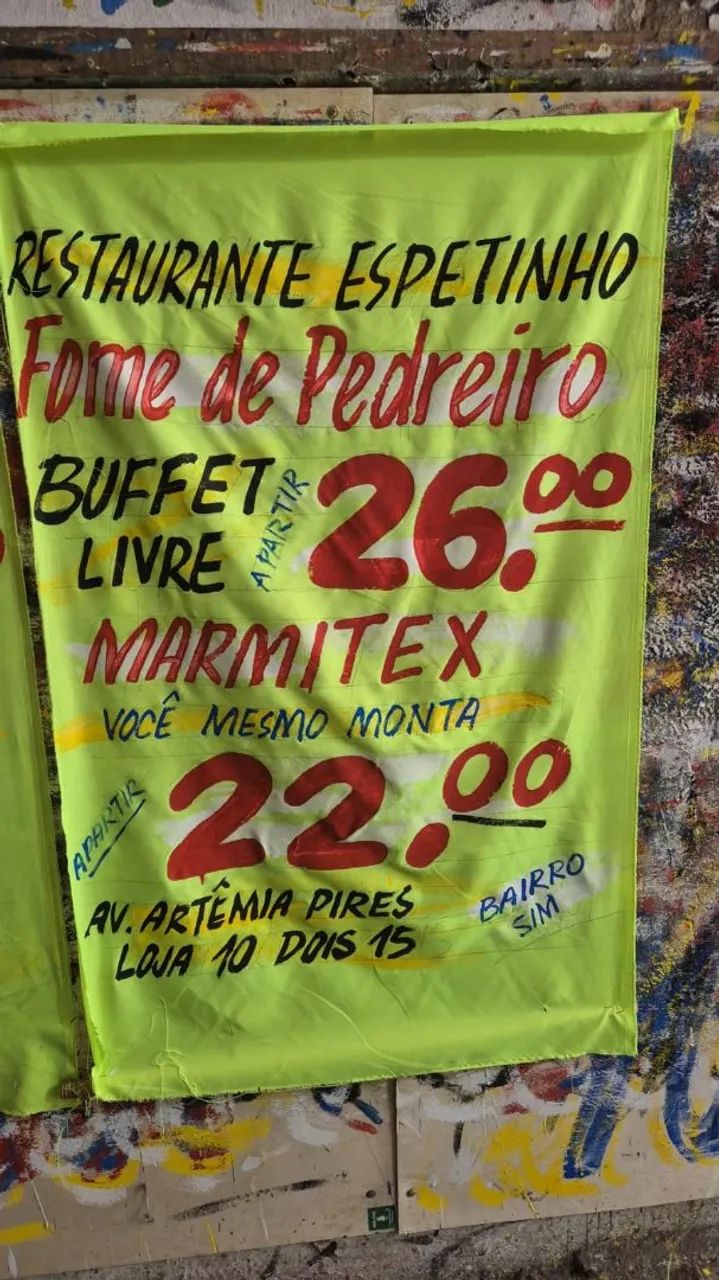 RESTAURANTE ESPETINHO
Fome de Pedreiro
BUFFET LIVRE
APARTIR
26.00
MARMITEX
VOCÊ MESMO MONTA
APARTIR
22.00
AV. ARTÊMIA PIRES
LOJA 10 DOIS 15
BAIRRO
SIM